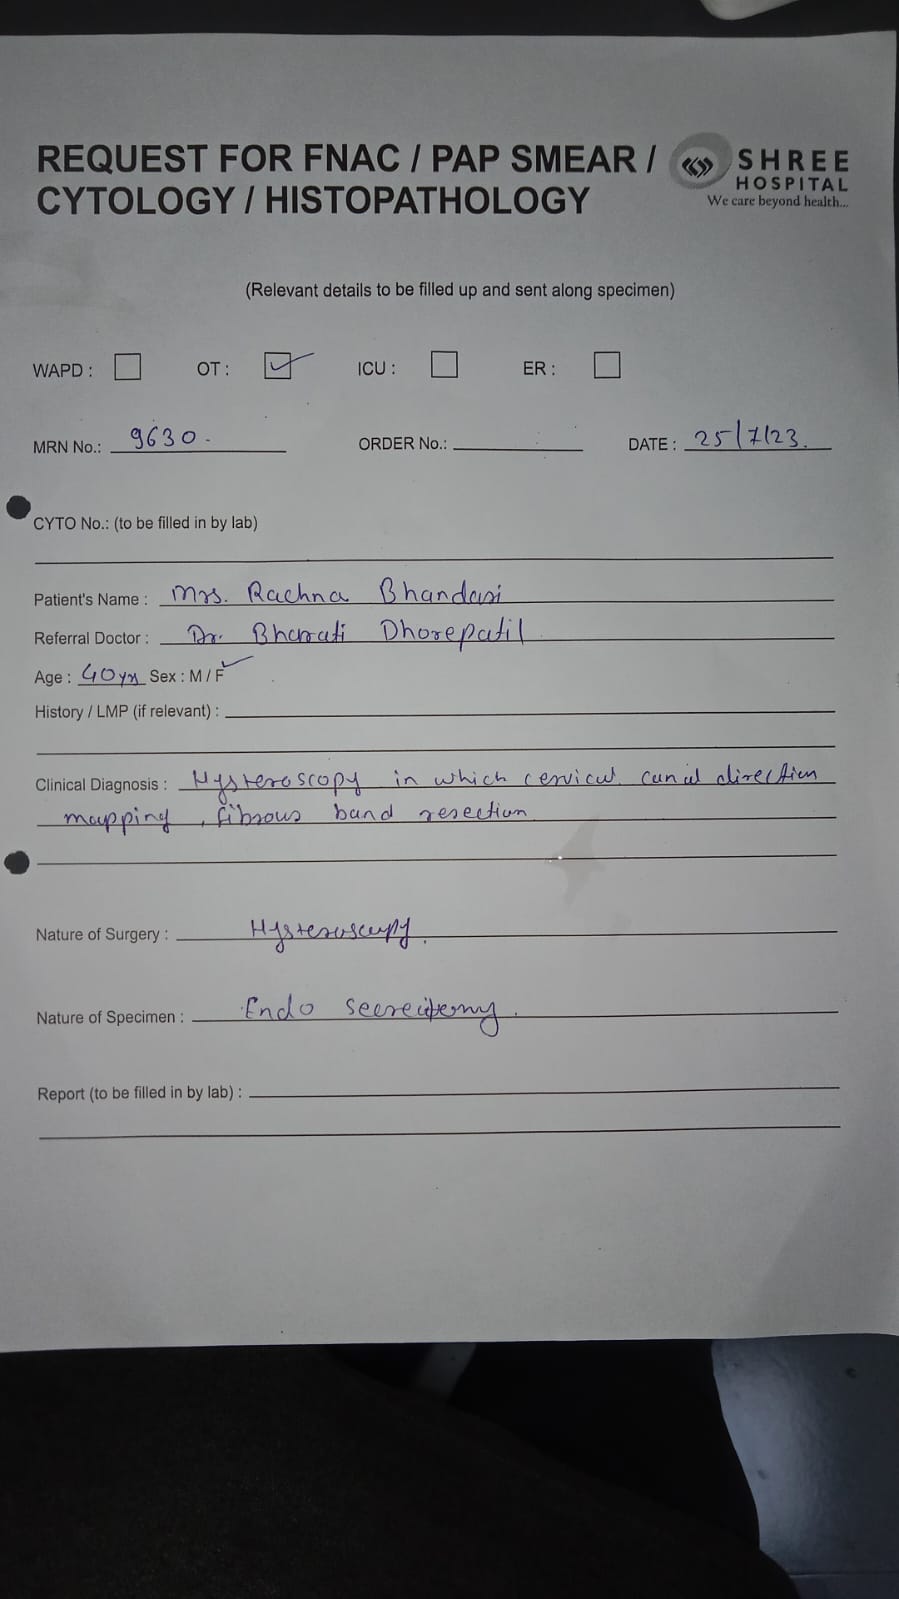 REQUEST FOR FNAC / PAP SMEAR /
CYTOLOGY / HISTOPATHOLOGY
SHREE
HOSPITAL
We care beyond health...
(Relevant details to be filled up and sent along specimen)
WAPD : OT : ICU : ER :
MRN No.: 9630. ORDER No.: DATE : 25/7/23.
CYTO No.: (to be filled in by lab)
Patient's Name : Mrs. Rachna Bhandari
Referral Doctor : Dr. Bharati Dhorepatil
Age : 40yrs Sex : M / F
History / LMP (if relevant) :
Clinical Diagnosis : Hysteroscopy in which cervical canal direction
mapping , fibrous band resection
Nature of Surgery : Hysteroscopy.
Nature of Specimen : Endo
Report (to be filled in by lab) :